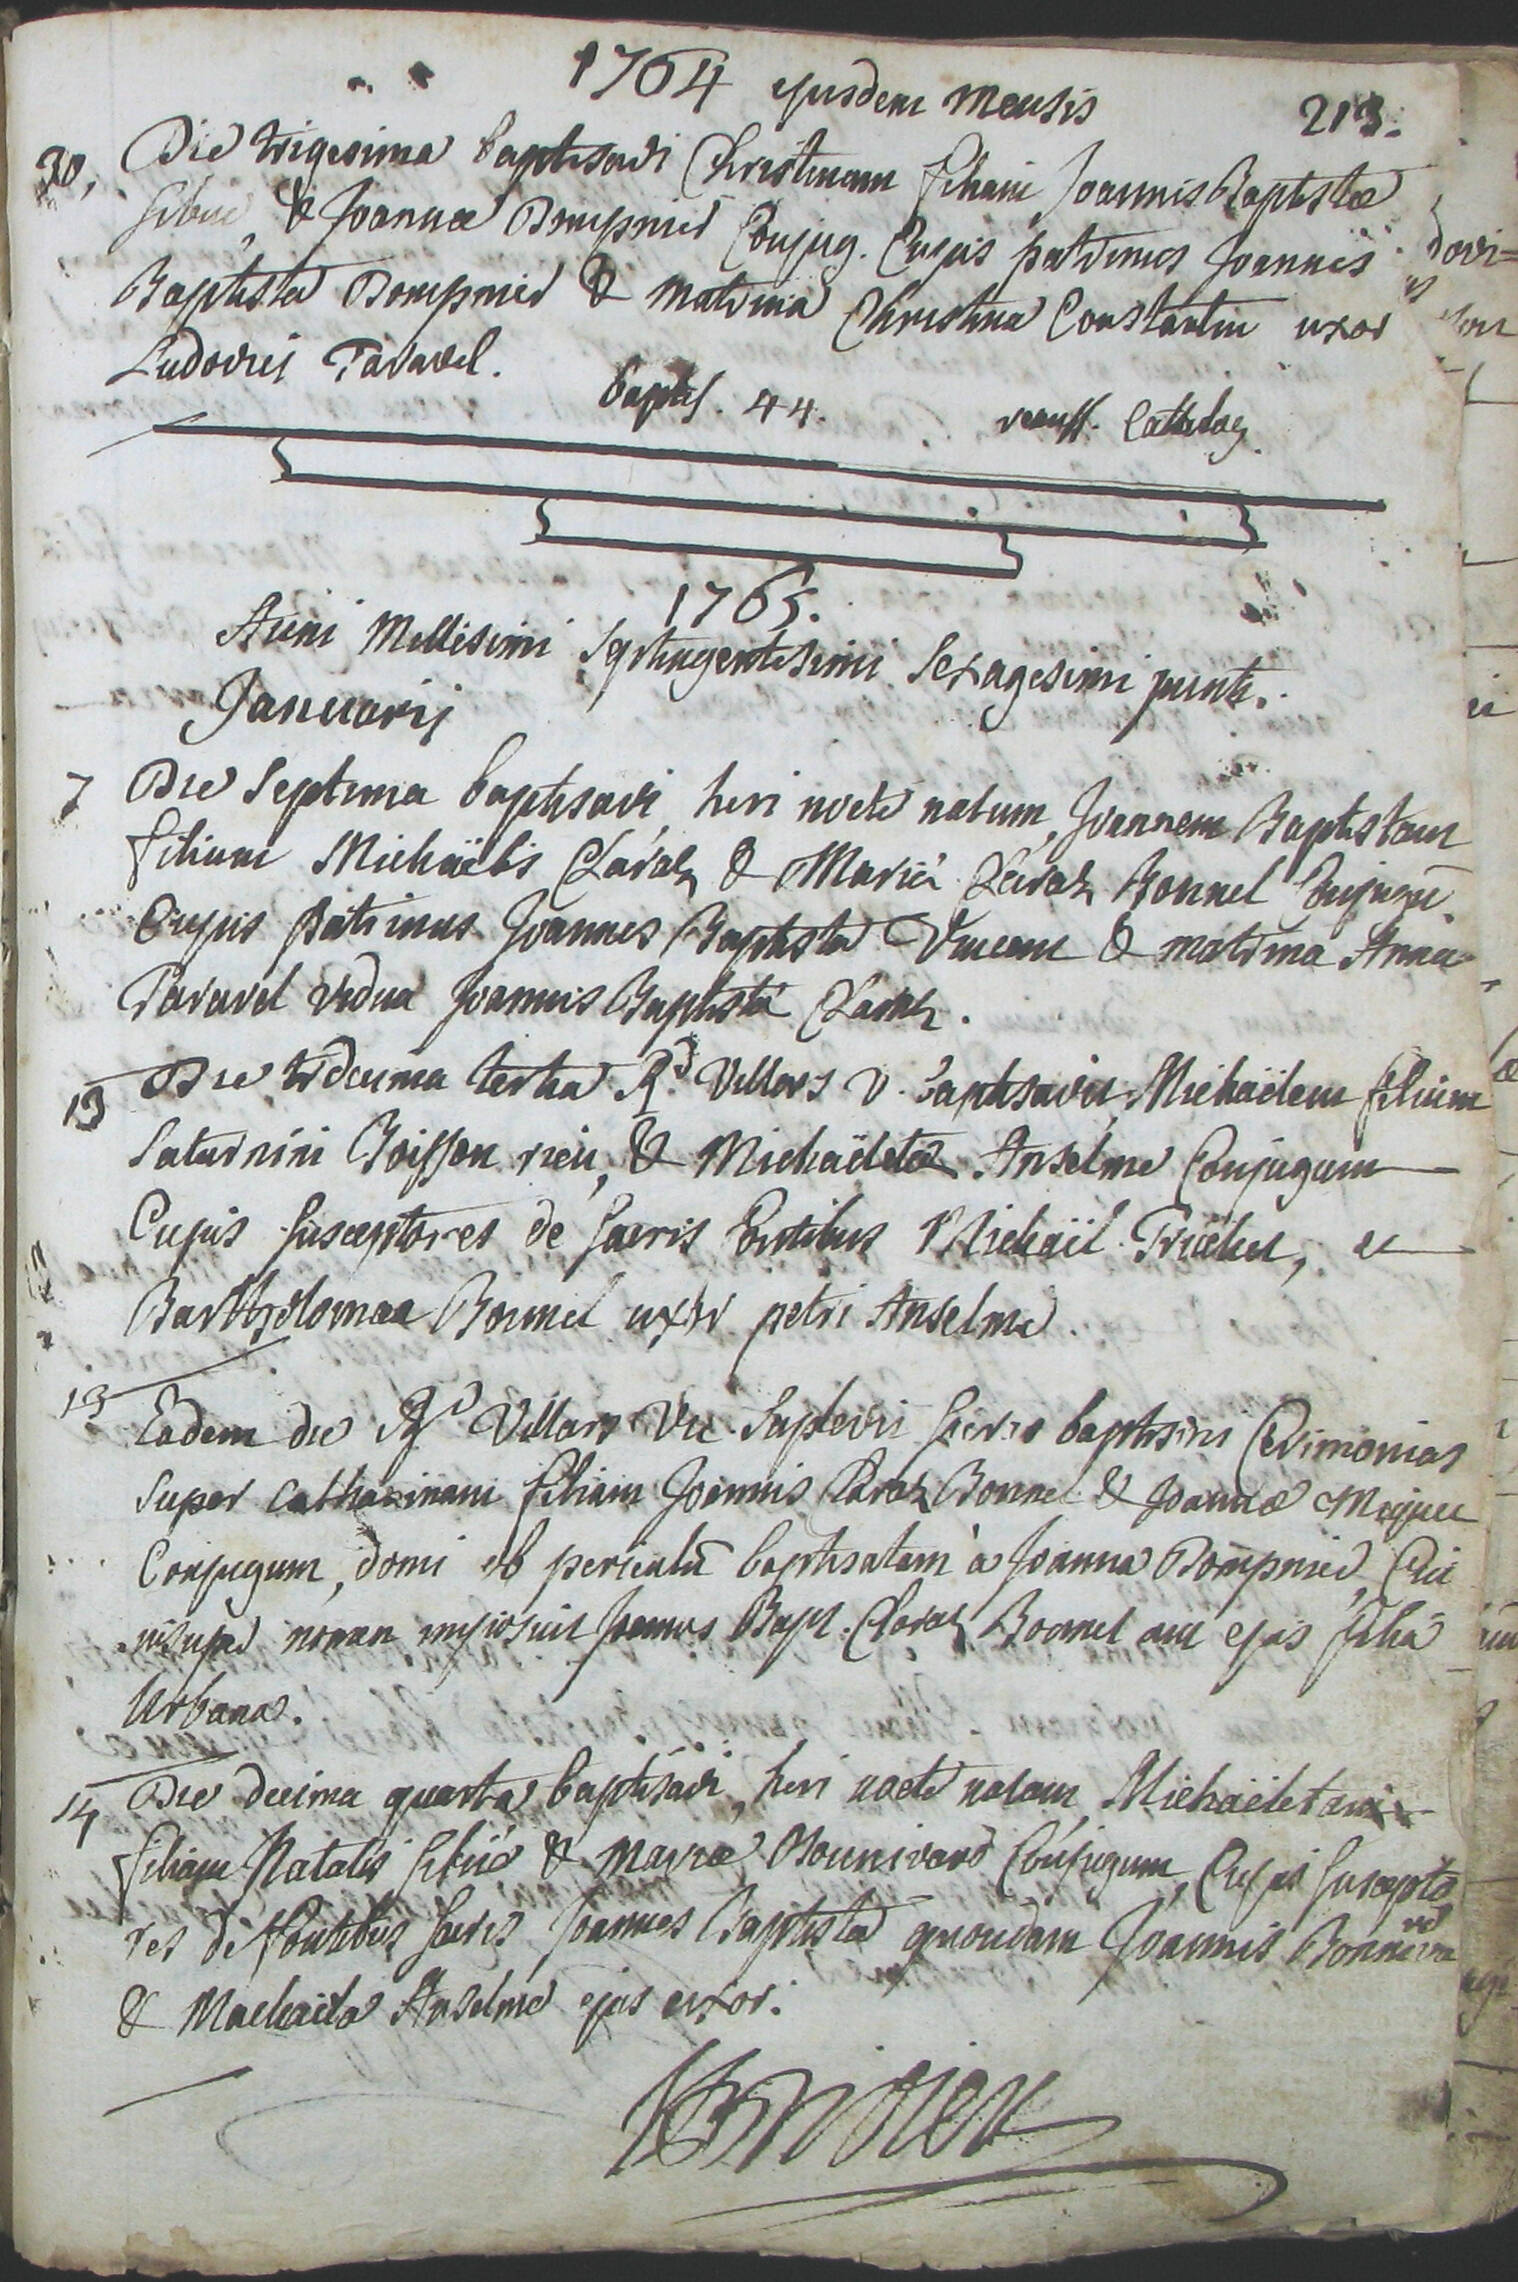 1764 ejusdem Mensis 213.
30, Die trigesima baptisavi Christinam filiam Joannis Baptistæ
& Joannæ Dompnier Conjug. Cujus patrinus Joannes
Baptista Dompnier & Matrina Christina Constantin uxor
Ludovici Taravel.
baptis. 44.
1765.
Anni Millesimi Septingentesimi Sexagesimi
Januarij
7 Die Septima baptisavi heri nocte natum, Joannem Baptistam
filium Michaëlis Claraz & Mariæ Claraz Bonnel Conjugū.
Cujus patrinus Joannes Baptista Vincent & matrina Anna
Taravel vidua Joannis Baptistæ Claraz.
13 Die decima tertia Rd Villars V. baptisavit Michaëlem filium
Saturnini Boisson rieu, & Michaëletæ Anselme Conjugum
Cujus Susceptores de Sacris Fontibus Michaël Truchet, et
Bartholomæa Bonnel uxor petri Anselme.
13 Eadem die Rd Villars Vic. Suplevit Sacris baptismi Cerimonias
Super Catharinam filiam Joannis Claraz Bonnel & Joannæ
Conjugum, domi ob periculū baptisatam à Joanna Dompnier, Cui
nomen imposuit Joannes Bapt. Claraz Bonnel cum ejus filiâ
Urbana.
14 Die decima quarta baptisavi, heri nocte natam Michaëletam
filiam Natalis & Mariæ Bonnivard Conjugum, Cujus Suscepto
res de Fontibus Sacris Joannes Baptista quondam Joannis Bonnivard
& Michaëla Anselme ejus uxor.